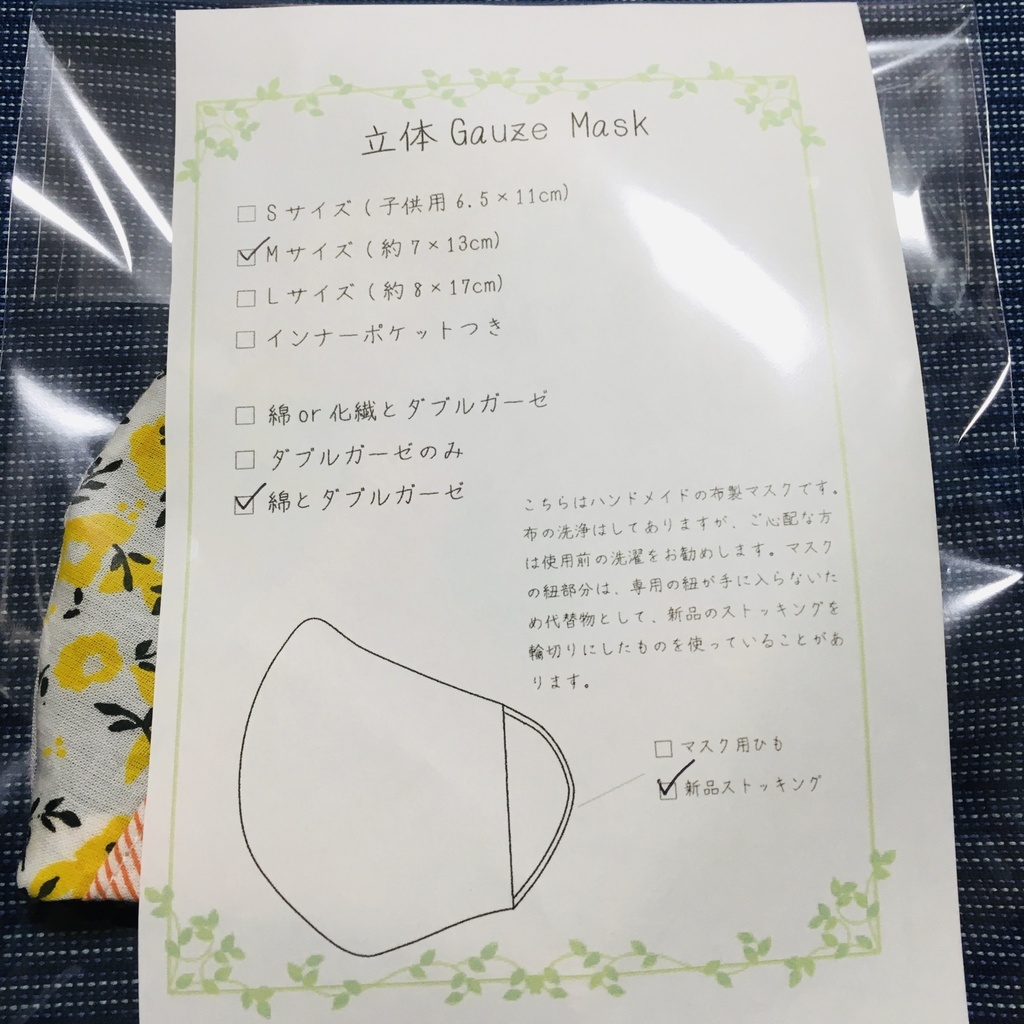 立体 Gauze Mask
□ Sサイズ (子供用 6.5×11cm)
☑ Mサイズ (約 7×13cm)
□ Lサイズ (約 8×17cm)
□ インナーポケットつき
□ 綿or化繊とダブルガーゼ
□ ダブルガーゼのみ
☑ 綿とダブルガーゼ
こちらはハンドメイドの布製マスクです。
布の洗浄はしてありますが、ご心配な方
は使用前の洗濯をお勧めします。マスク
の紐部分は、専用の紐が手に入らないた
め代替物として、新品のストッキングを
輪切りにしたものを使っていることがあ
ります。
□ マスク用ひも
☑ 新品ストッキング